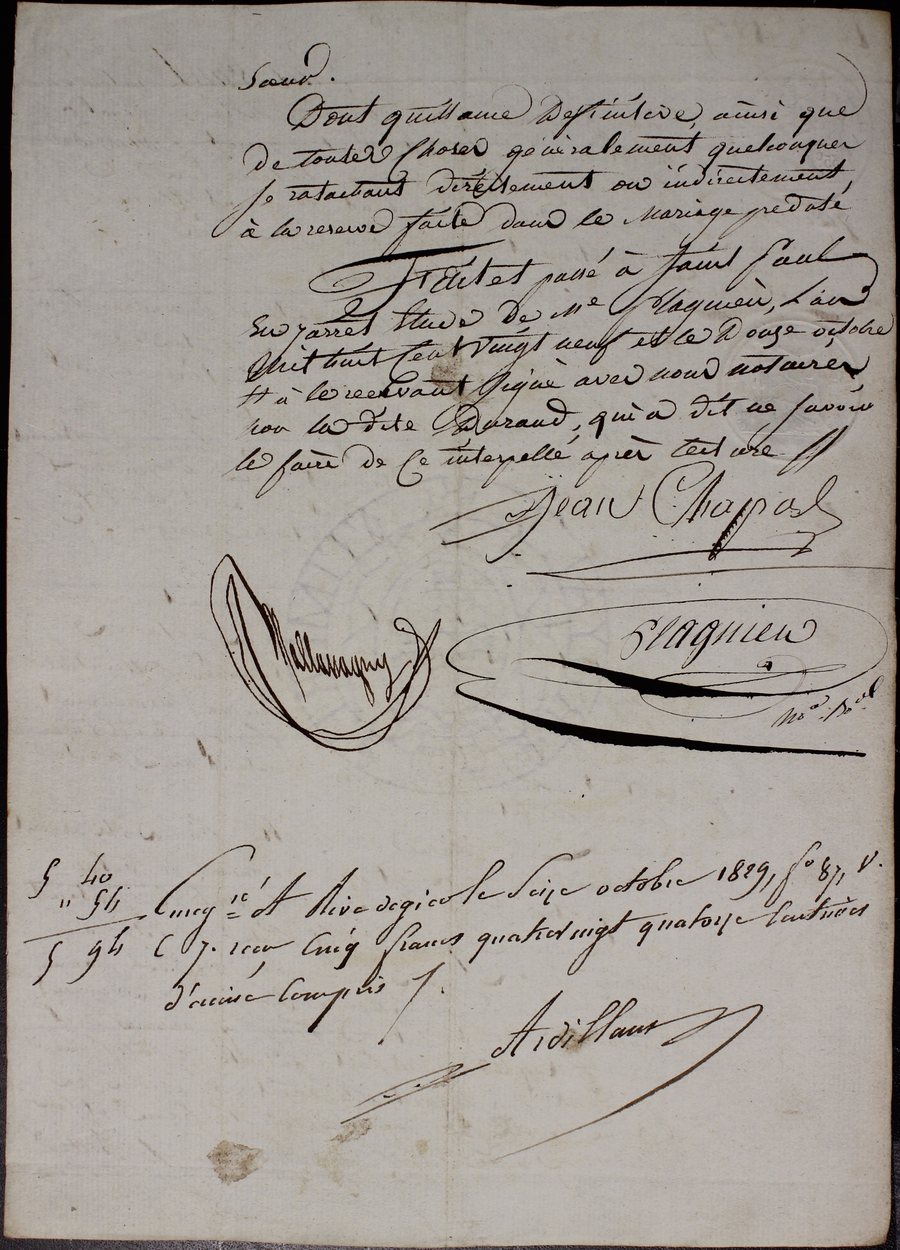 Sœur.
Dont quittance Definitive, ainsi que
de toutes Choses généralement quelconques
se ratachant directement ou indirectement,
à la reserve faite dans le Mariage predaté
Fait et passé à Saint Paul
En jarret Etude de Me Plagnieu, L'an
Mil huit Cent Vingt neuf et le Douze octobre
le recevant signé avec nous notaires
non la dite Durand, qui a dit ne savoir
le faire de Ce interpellé, après lecture
Jean Chapard
Mallassagny
Plagnieu
5 40
" 54
5 94
Enregré At Rive degier le Seize octobre 1829, fo 87, V.
C 7. reçu Cinq francs quatrevingt quatorze Centimes
d'ecime Compris
Ardillans